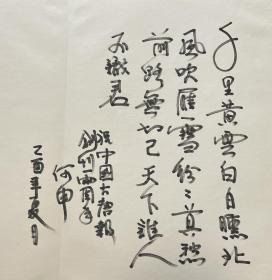 千里黄雲白日曛北
風吹雁雪紛〻莫愁
前路無知己天下誰人
不識君
祝中國報
創刊一周年
何申
乙酉年夏月